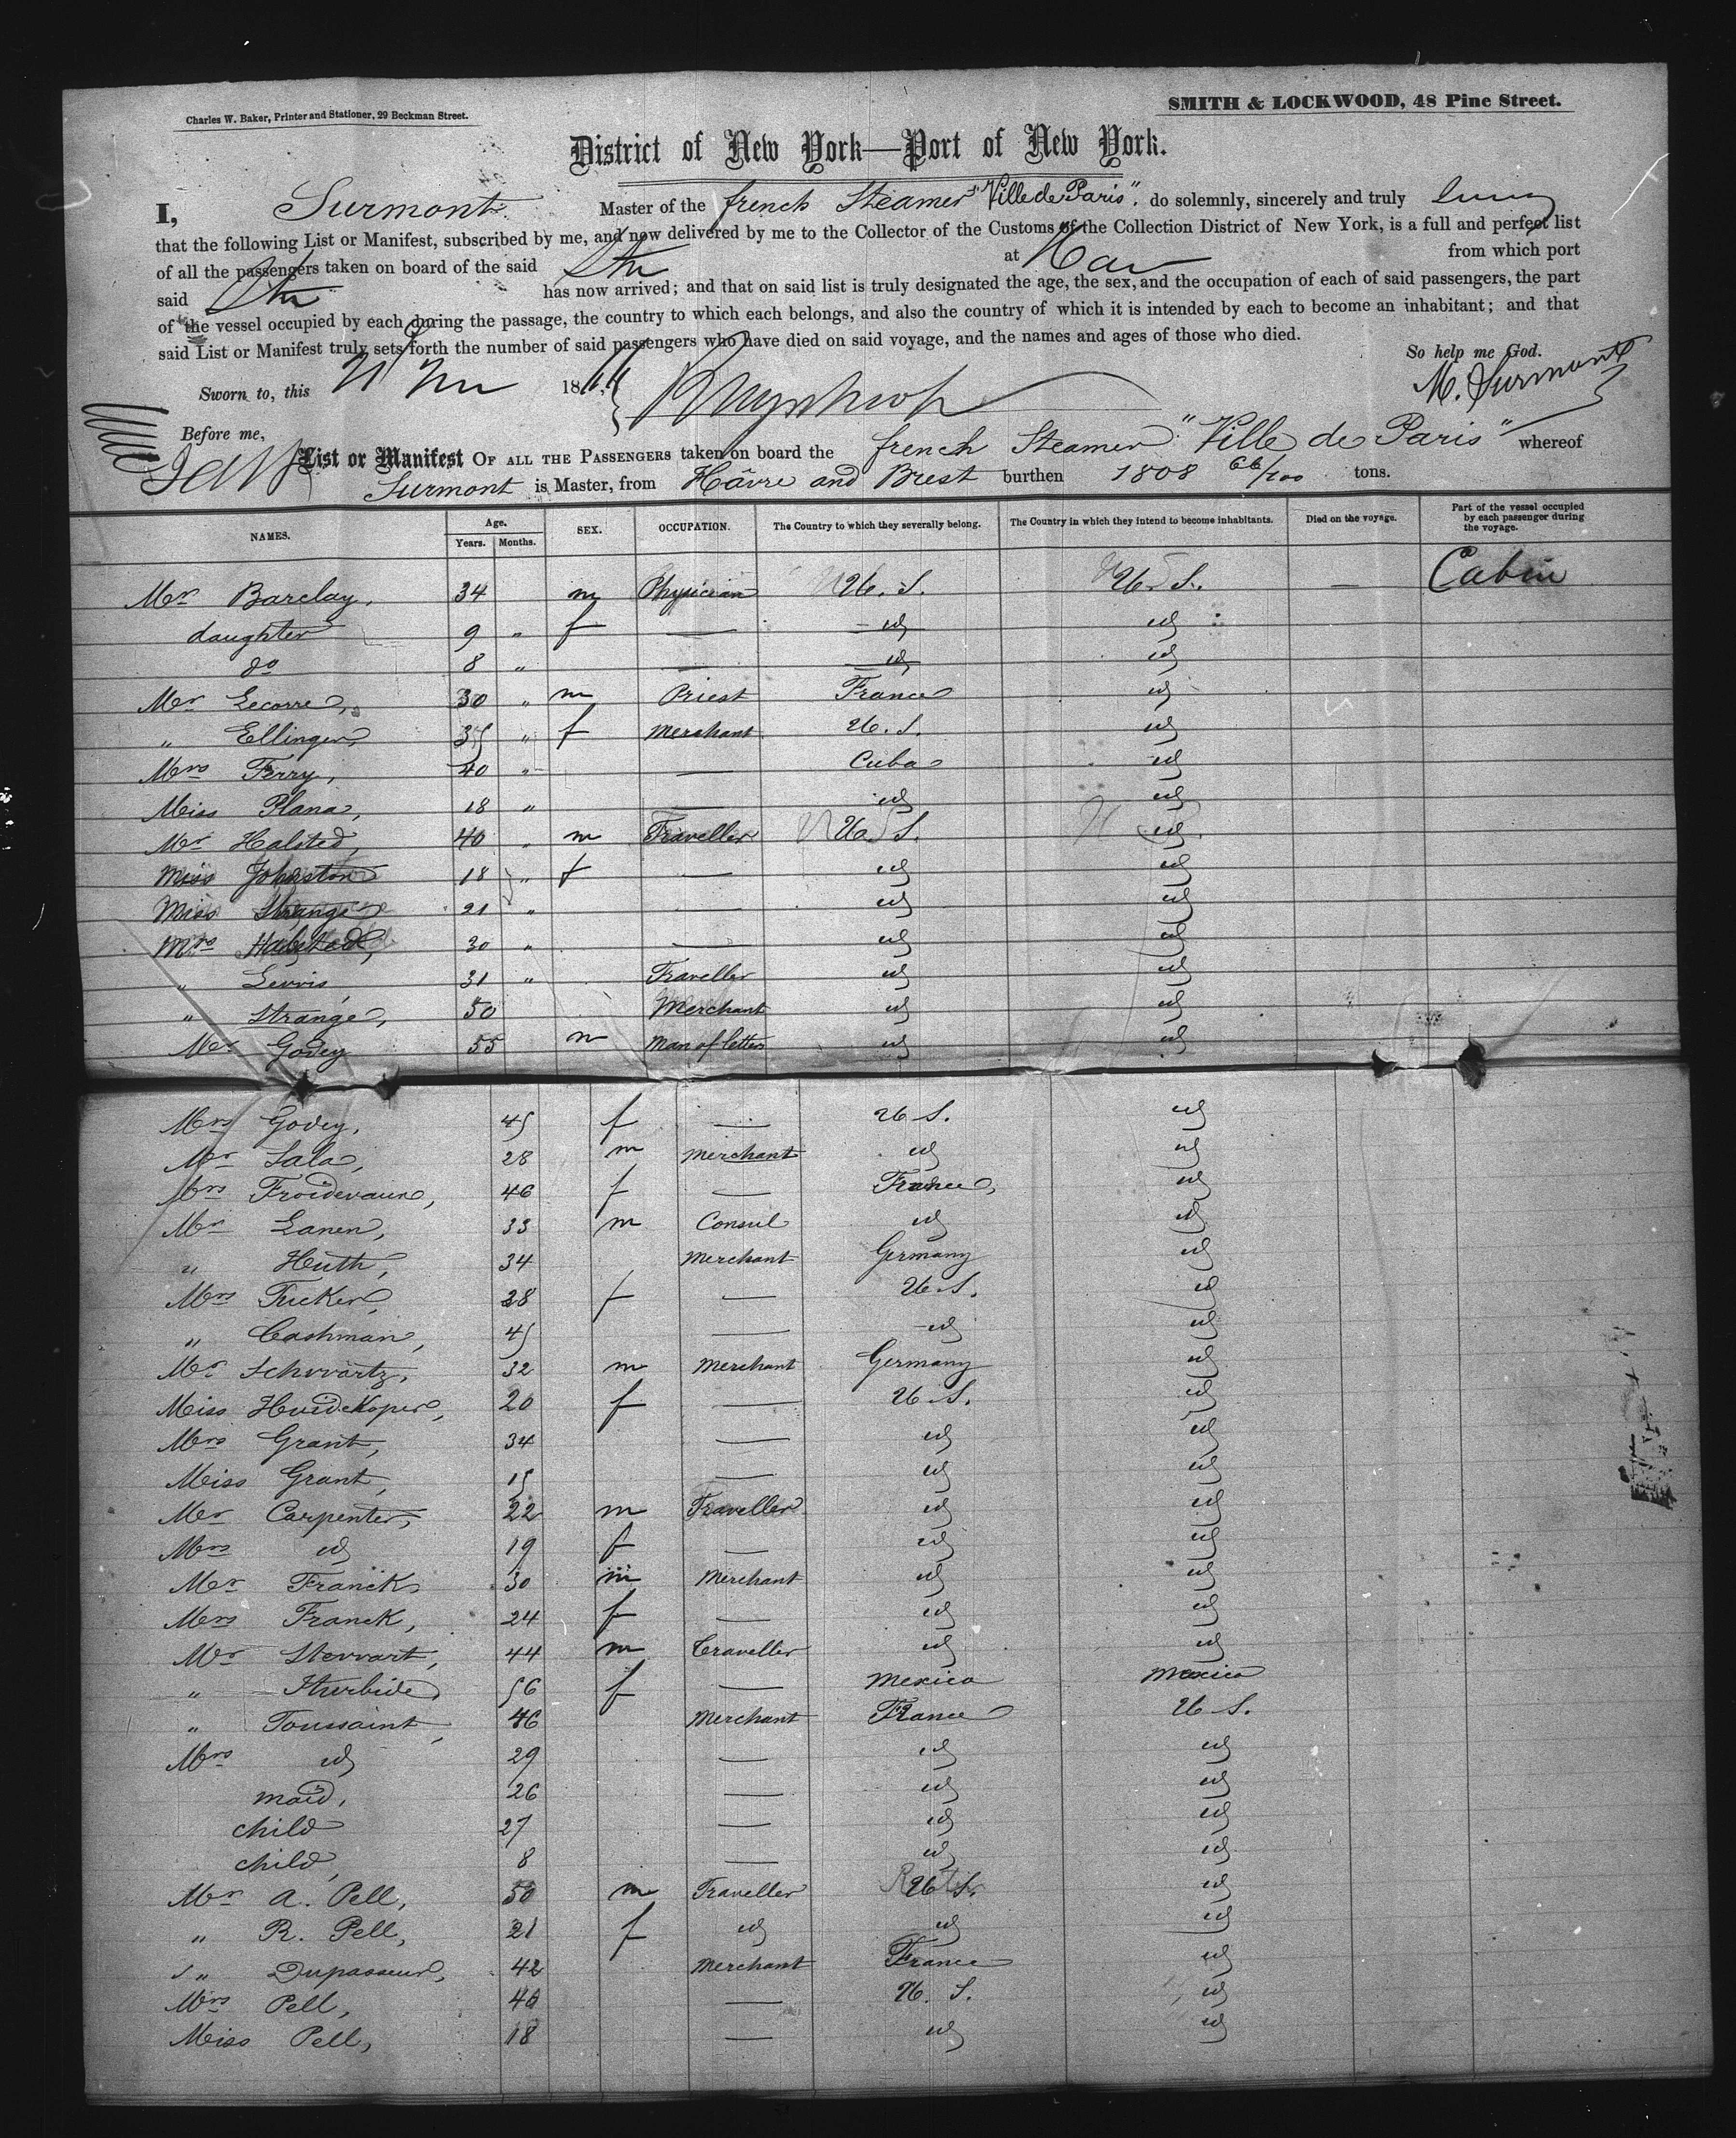 Charles W. Baker, Printer and Stationer, 29 Beekman Street.
SMITH & LOCKWOOD, 48 Pine Street.
District of New York—Port of New York.
I, Surmont Master of the french Steamer "Ville de Paris". do solemnly, sincerely and truly
that the following List or Manifest, subscribed by me, and now delivered by me to the Collector of the Customs of the Collection District of New York, is a full and perfect list
of all the passengers taken on board of the said Str at Hav from which port
said Str has now arrived; and that on said list is truly designated the age, the sex, and the occupation of each of said passengers, the part
of the vessel occupied by each during the passage, the country to which each belongs, and also the country of which it is intended by each to become an inhabitant; and that
said List or Manifest truly sets forth the number of said passengers who have died on said voyage, and the names and ages of those who died.
So help me God.
Sworn to, this 21 186
M. Surmont
Before me,
List or Manifest OF ALL THE PASSENGERS taken on board the french Steamer "Ville de Paris" whereof
Surmont is Master, from Hâvre and Brest burthen 1808 66/100 tons.
NAMES. Age. Years. Months. SEX. OCCUPATION. The Country to which they severally belong. The Country in which they intend to become inhabitants. Died on the voyage. Part of the vessel occupied by each passenger during the voyage.
Mr Barclay, 34 m Physician U. S. U. S. — Cabin
daughter 9 " f — id id
do 8 " — id id
Mr Lecorre, 30 " m Priest France id
" Ellinger, 35 " f Merchant U. S. id
Mrs Ferry, 40 " — Cuba id
Miss Plana, 18 " — id id
Mr Halsted, 40 " m Traveller U. S. id
Miss Johnston 18 " f — id id
Miss Strange 21 " — id id
Mrs Halsted, 30 " — id id
" Lewis, 31 " Traveller id id
" Strange, 50 Merchant id id
Mr Godey 55 m Man of letters id id
Mrs Godey, 45 f — U S. id
Mr Sala, 28 m merchant id id
Mrs Froidevaux, 46 f — France, id
Mr Lanen, 33 m Consul id id
" Huth, 34 Merchant Germany id
Mrs Tucker, 28 f — U. S. id
" Cashman, 45 — id id
Mr Schwartz, 32 m Merchant Germany id
Miss Huidekoper, 20 f — U. S. id
Mrs Grant, 34 — id id
Miss Grant, 15 — id id
Mr Carpenter, 22 m Traveller id id
Mrs id 19 f — id id
Mr Franck, 30 m Merchant id id
Mrs Franck, 24 f — id id
Mr Stewart, 44 m Traveller id id
" Iturbide, 56 f — Mexico Mexico
" Toussaint, 46 Merchant France U S.
Mrs id 29 — id id
maid, 26 — id id
child 27 — id id
child, 8 — id id
Mr A. Pell, 50 m Traveller U S. id
" R. Pell, 21 f id id id
" Dupasseur, 42 Merchant France id
Mrs Pell, 40 — U. S. id
Miss Pell, 18 — id id